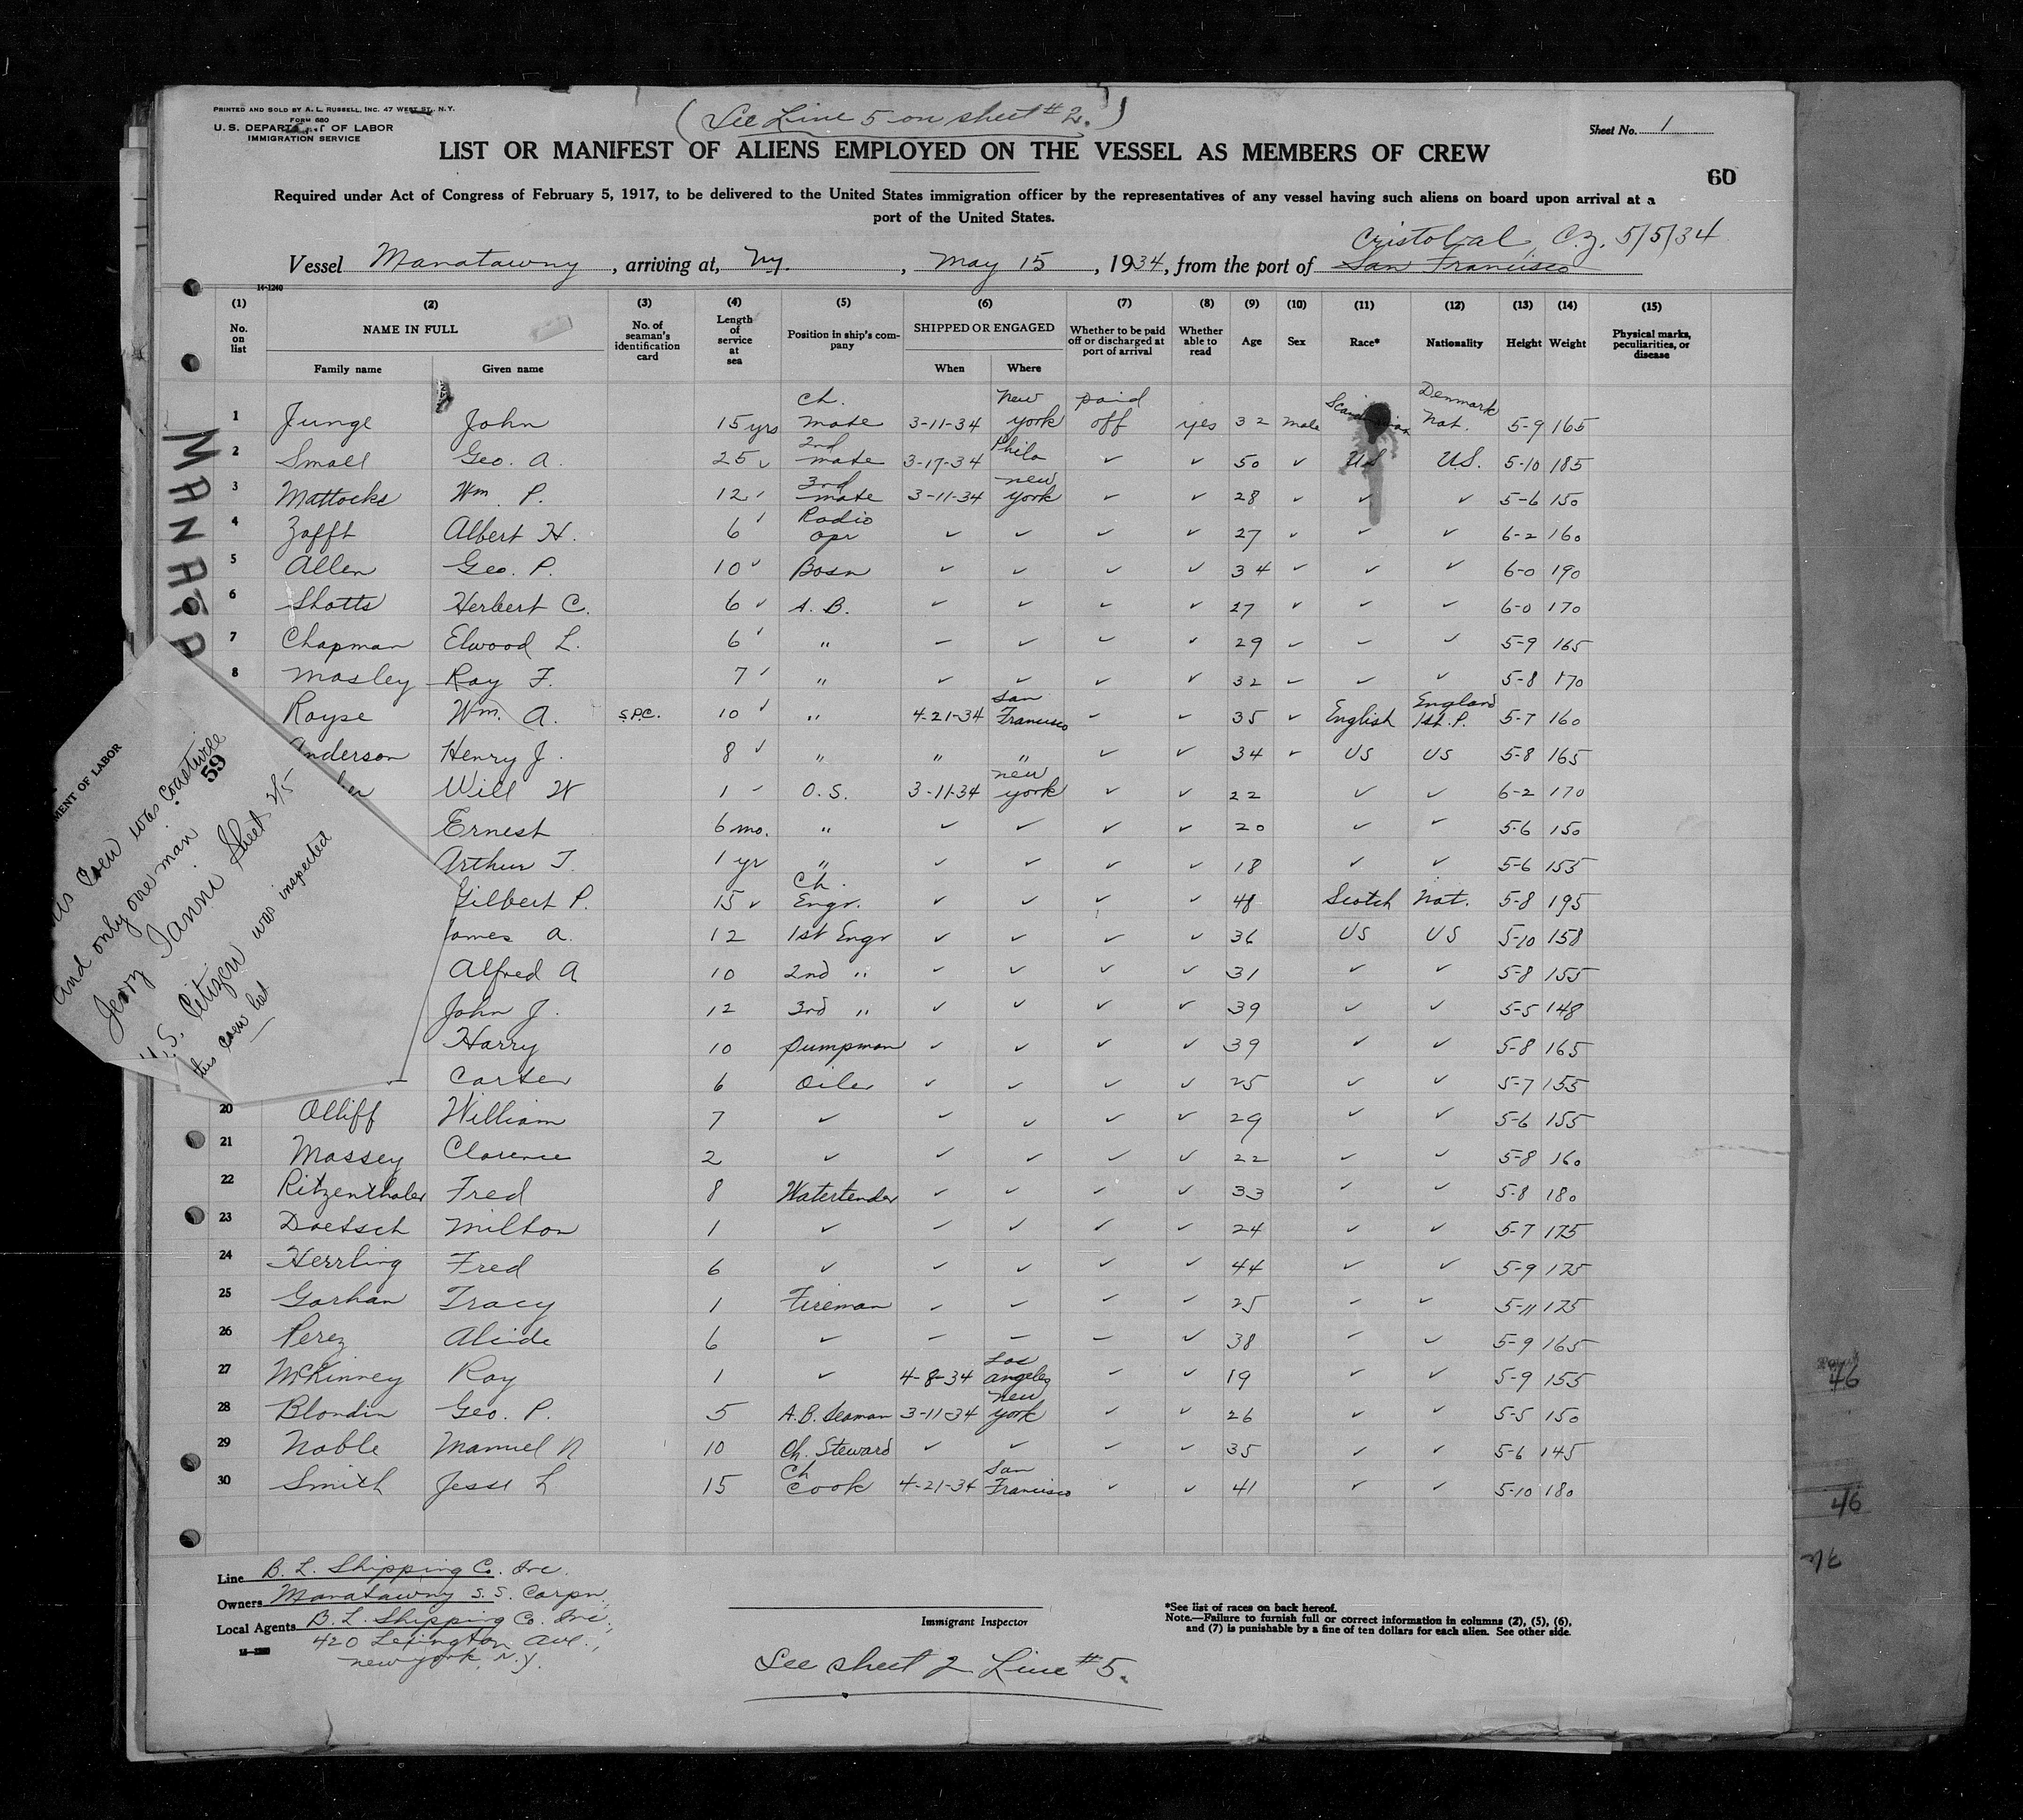 PRINTED AND SOLD BY A. L. RUSSELL, INC. 47 WEST ST., N.Y.
FORM 680
U.S. DEPARTMENT OF LABOR
IMMIGRATION SERVICE
(See Line 5 on sheet #2.)
Sheet No. 1
LIST OR MANIFEST OF ALIENS EMPLOYED ON THE VESSEL AS MEMBERS OF CREW
60
Required under Act of Congress of February 5, 1917, to be delivered to the United States immigration officer by the representatives of any vessel having such aliens on board upon arrival at a
port of the United States.
Cristobal, C.Z. 5/5/34
Vessel Manatawny, arriving at, N.Y., May 15, 1934, from the port of San Francisco
14-1240
(1) (2) (3) (4) (5) (6) (7) (8) (9) (10) (11) (12) (13) (14) (15)
No. on list NAME IN FULL No. of seaman's identification card Length of service at sea Position in ship's company SHIPPED OR ENGAGED Whether to be paid off or discharged at port of arrival Whether able to read Age Sex Race* Nationality Height Weight Physical marks, peculiarities, or disease
Family name Given name When Where
1 Junge John 15 yrs Ch. mate 3-11-34 New York paid off yes 32 male Scandinavian Denmark Nat. 5-9 165
2 Small Geo. A. 25 ✓ 2nd mate 3-17-34 Phila ✓ ✓ 50 ✓ US U.S. 5-10 185
3 Mattocks Wm. P. 12 ✓ 3rd mate 3-11-34 New York ✓ ✓ 28 ✓ ✓ ✓ 5-6 150
4 Zafft Albert H. 6 ✓ Radio opr ✓ ✓ ✓ ✓ 27 ✓ ✓ ✓ 6-2 160
5 Allen Geo. P. 10 ✓ Bosn ✓ ✓ ✓ ✓ 34 ✓ ✓ ✓ 6-0 190
6 Shotts Herbert C. 6 ✓ A. B. ✓ ✓ ✓ ✓ 27 ✓ ✓ ✓ 6-0 170
7 Chapman Elwood L. 6 ✓ " ✓ ✓ ✓ ✓ 29 ✓ ✓ ✓ 5-9 165
8 Mosley Ray F. 7 ✓ " ✓ ✓ ✓ ✓ 32 ✓ ✓ ✓ 5-8 170
Royse Wm. A. S.P.C. 10 ✓ " 4-21-34 San Francisco ✓ ✓ 35 ✓ English England 1st. P. 5-7 160
Anderson Henry J. 8 ✓ " " " ✓ ✓ 34 ✓ US US 5-8 165
Will W 1 ✓ O. S. 3-11-34 New York ✓ ✓ 22 ✓ ✓ 6-2 170
Ernest 6 mo. " ✓ ✓ ✓ ✓ 20 ✓ ✓ 5-6 150
Arthur T. 1 yr " ✓ ✓ ✓ ✓ 18 ✓ ✓ 5-6 155
Gilbert P. 15 ✓ Ch. Engr. ✓ ✓ ✓ ✓ 48 Scotch Nat. 5-8 195
James A. 12 1st Engr ✓ ✓ ✓ ✓ 36 US US 5-10 158
Alfred A 10 2nd " ✓ ✓ ✓ ✓ 31 ✓ ✓ 5-8 155
John J. 12 3rd " ✓ ✓ ✓ ✓ 39 ✓ ✓ 5-5 148
Harry 10 Pumpman ✓ ✓ ✓ ✓ 39 ✓ ✓ 5-8 165
Carter 6 Oiler ✓ ✓ ✓ ✓ 25 ✓ ✓ 5-7 155
20 Olliff William 7 ✓ ✓ ✓ ✓ ✓ 29 ✓ ✓ 5-6 155
21 Massey Clarence 2 ✓ ✓ ✓ ✓ ✓ 22 ✓ ✓ 5-8 160
22 Ritzenthaler Fred 8 Watertender ✓ ✓ ✓ ✓ 33 ✓ ✓ 5-8 180
23 Doetsch Milton 1 ✓ ✓ ✓ ✓ ✓ 24 ✓ ✓ 5-7 175
24 Herrling Fred 6 ✓ ✓ ✓ ✓ ✓ 44 ✓ ✓ 5-9 175
25 Gorhan Tracy 1 Fireman ✓ ✓ ✓ ✓ 25 ✓ ✓ 5-11 175
26 Perez Alcide 6 ✓ ✓ ✓ ✓ ✓ 38 ✓ ✓ 5-9 165
27 McKinney Roy 1 ✓ 4-8-34 Los Angeles ✓ ✓ 19 ✓ ✓ 5-9 155
28 Blondin Geo. P. 5 A.B. Seaman 3-11-34 New York ✓ ✓ 26 ✓ ✓ 5-5 150
29 Noble Manuel N 10 Ch. Steward ✓ ✓ ✓ ✓ 35 ✓ ✓ 5-6 145
30 Smith Jesse L 15 Ch Cook 4-21-34 San Francisco ✓ ✓ 41 ✓ ✓ 5-10 180
MENT OF LABOR
59
Crew was coastwise
and only one man
Jerry Ianni Sheet 2/5
U.S. Citizen was inspected
this crew list
Line B. L. Shipping Co. Inc.
Owners Manatawny S.S. Corpn.
Local Agents B. L. Shipping Co. Inc.
420 Lexington Ave.,
New York, N.Y.
Immigrant Inspector
*See list of races on back hereof.
Note.—Failure to furnish full or correct information in columns (2), (5), (6),
and (7) is punishable by a fine of ten dollars for each alien. See other side.
See sheet 2 Line #5.
46
46